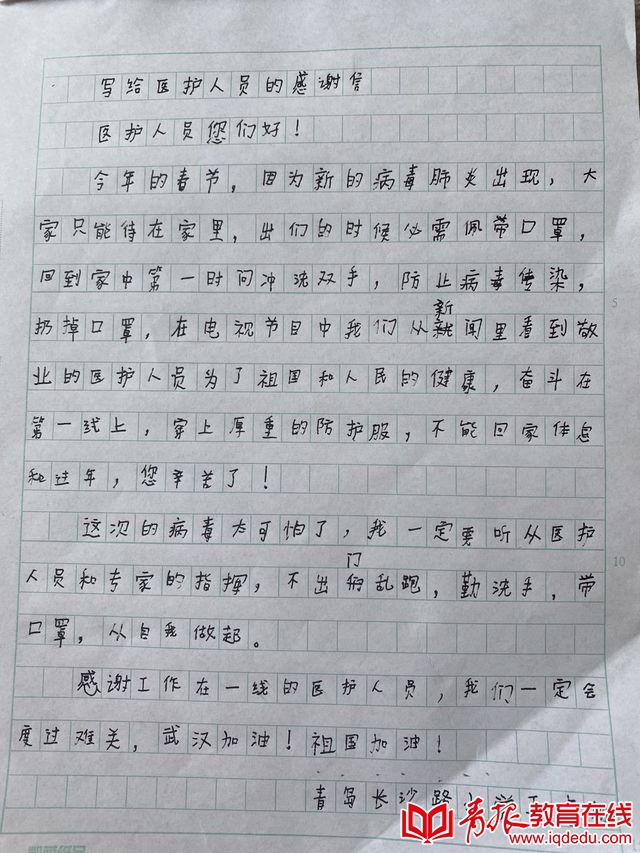 写给医护人员的感谢信
医护人员您们好！
今年的春节，因为新的病毒肺炎出现，大
家只能待在家里，出们的时候必需佩带口罩，
回到家中第一时间冲洗双手，防止病毒传染，
新
扔掉口罩，在电视节目中我们从闻里看到敬
业的医护人员为了祖国和人民的健康，奋斗在
第一线上，穿上厚重的防护服，不能回家休息
和过年，您辛苦了！
这次的病毒太可怕了，我一定要听从医护
门
人员和专家的指挥，不出乱跑，勤洗手，带
口罩，从自我做起。
感谢工作在一线的医护人员，我们一定会
度过难关，武汉加油！祖国加油！
青岛长沙路小学
5
10
青报教育在线
www.iqdedu.com